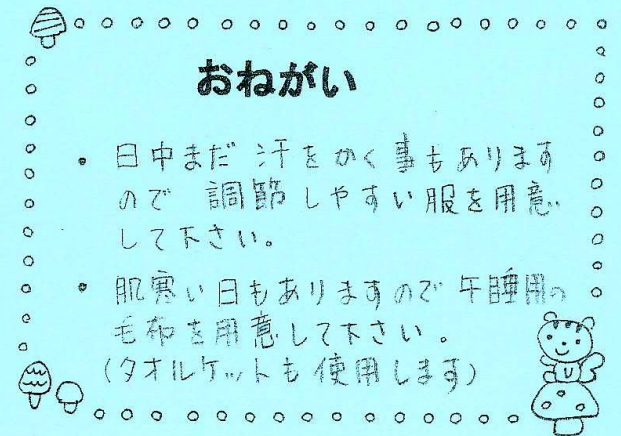 おねがい
・日中まだ汗をかく事もあります
ので 調節しやすい服を用意
して下さい。
・肌寒い日もありますので午睡用の
毛布を用意して下さい。
(タオルケットも使用します)